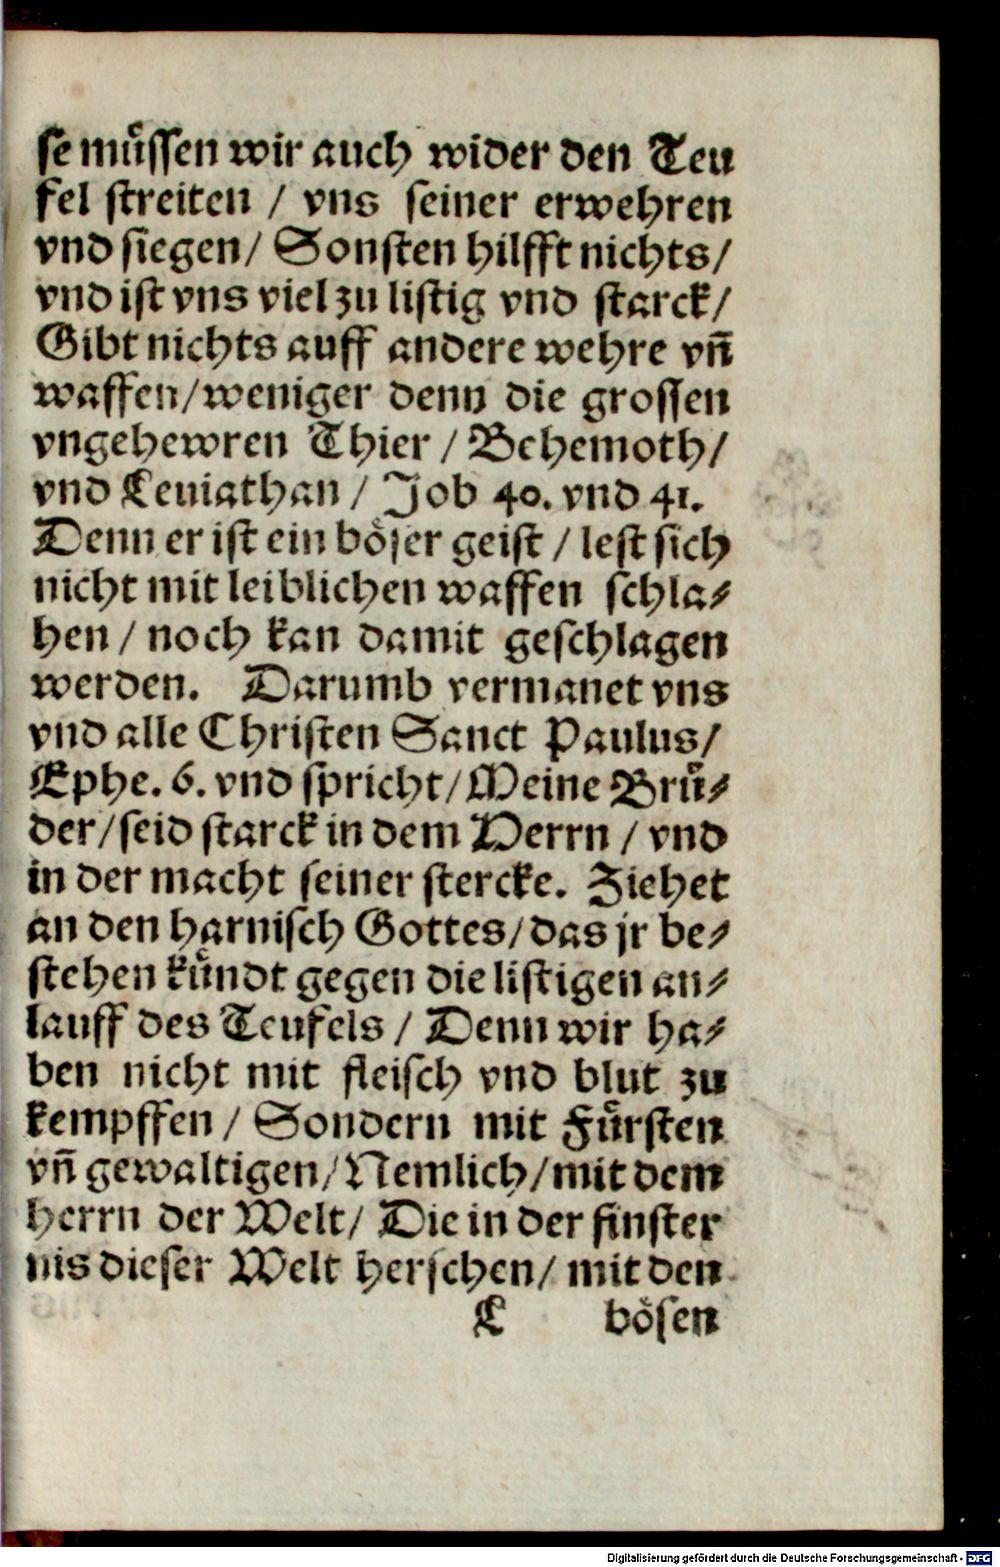 se müssen wir auch wider den Teu
fel streiten / vns seiner erwehren
vnd siegen / Sonsten hilfft nichts /
vnd ist vns viel zu listig vnd starck /
Gibt nichts auff andere wehre vñ
waffen / weniger denn die grossen
vngehewren Thier / Behemoth /
vnd Leuiathan / Job 40. vnd 41.
Denn er ist ein böser geist / lest sich
nicht mit leiblichen waffen schla⸗
hen / noch kan damit geschlagen
werden. Darumb vermanet vns
vnd alle Christen Sanct Paulus /
Ephe. 6. vnd spricht / Meine Brü⸗
der / seid starck in dem HErrn / vnd
in der macht seiner stercke. Ziehet
an den harnisch Gottes / das jr be⸗
stehen kündt gegen die listigen an⸗
lauff des Teufels / Denn wir ha⸗
ben nicht mit fleisch vnd blut zu
kempffen / Sondern mit Fürsten
vñ gewaltigen / Nemlich / mit dem
herrn der Welt / Die in der finster
nis dieser Welt herschen / mit den
L bösen
Digitalisierung gefördert durch die Deutsche Forschungsgemeinschaft - DFG